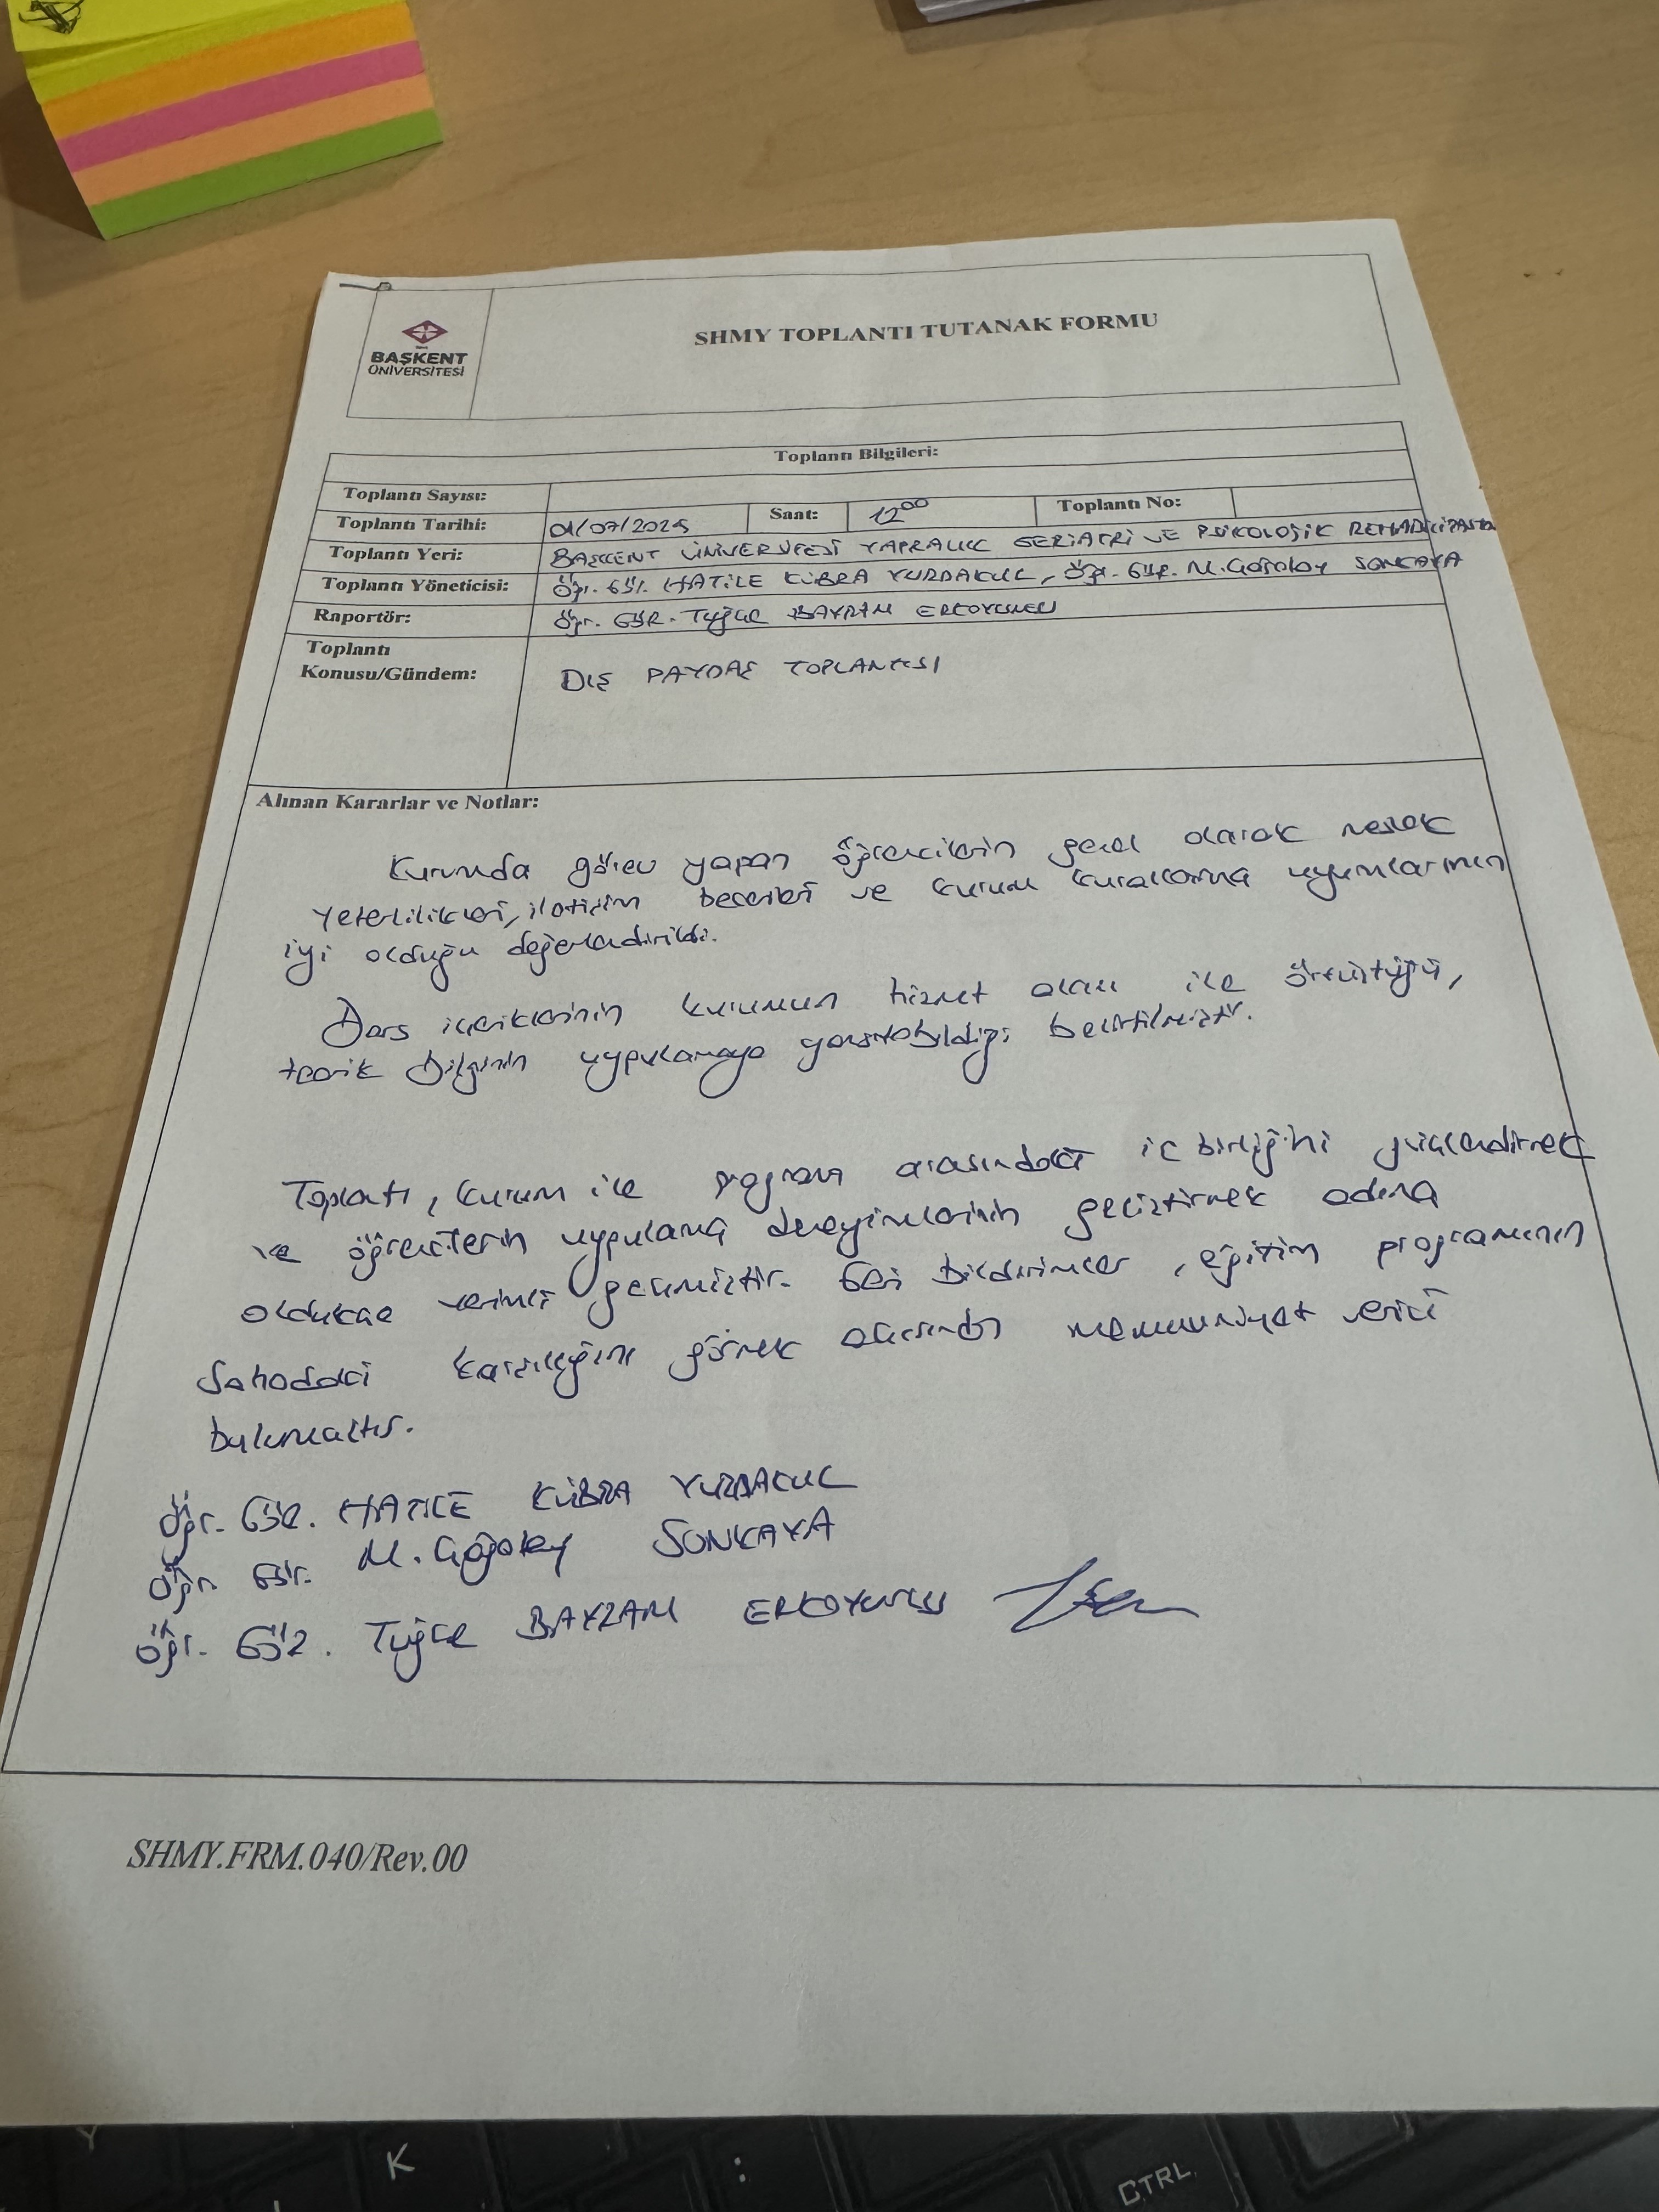 BAŞKENT
ÜNİVERSİTESİ
SHMY TOPLANTI TUTANAK FORMU
Toplantı Bilgileri:
Toplantı Sayısı:
Toplantı Tarihi: 01/07/2025 Saat: 12⁰⁰ Toplantı No:
Toplantı Yeri: BAŞKENT ÜNİVERSİTESİ YAPRACIK GERİATRİ VE PSİKOLOJİK REHABİLİTASYON
Toplantı Yöneticisi: Öğr. Gör. HATİCE KÜBRA YURDAKUL, Öğr. Gör. M. Çağatay SONKAYA
Raportör: Öğr. GÖR. Tuğçe BAYRAM ERKOYUNCU
Toplantı
Konusu/Gündem: DIŞ PAYDAŞ TOPLANTISI
Alınan Kararlar ve Notlar:
Kurumda görev yapan öğrencilerin genel olarak meslek
yeterlilikleri, iletişim becerileri ve kurum kurallarına uyumlarının
iyi olduğu değerlendirildi.
Ders içeriklerinin kurumun hizmet alanı ile örtüştüğü,
teorik bilginin uygulamaya yansıtabildiği belirtilmiştir.
Toplantı, kurum ile program arasındaki iş birliğini güçlendirmek
ve öğrencilerin uygulama deneyimlerinin geliştirmek adına
oldukça verimli geçmiştir. Geri bildirimler, eğitim programının
Sahadaki karşılığını görmek açısından memnuniyet verici
bulunmuştur.
Öğr. Gör. HATİCE KÜBRA YURDAKUL
Öğr. Gör. M. Çağatay SONKAYA
Öğr. Gör. Tuğçe BAYRAM ERKOYUNCU
SHMY.FRM.040/Rev.00
Y
K
:
CTRL